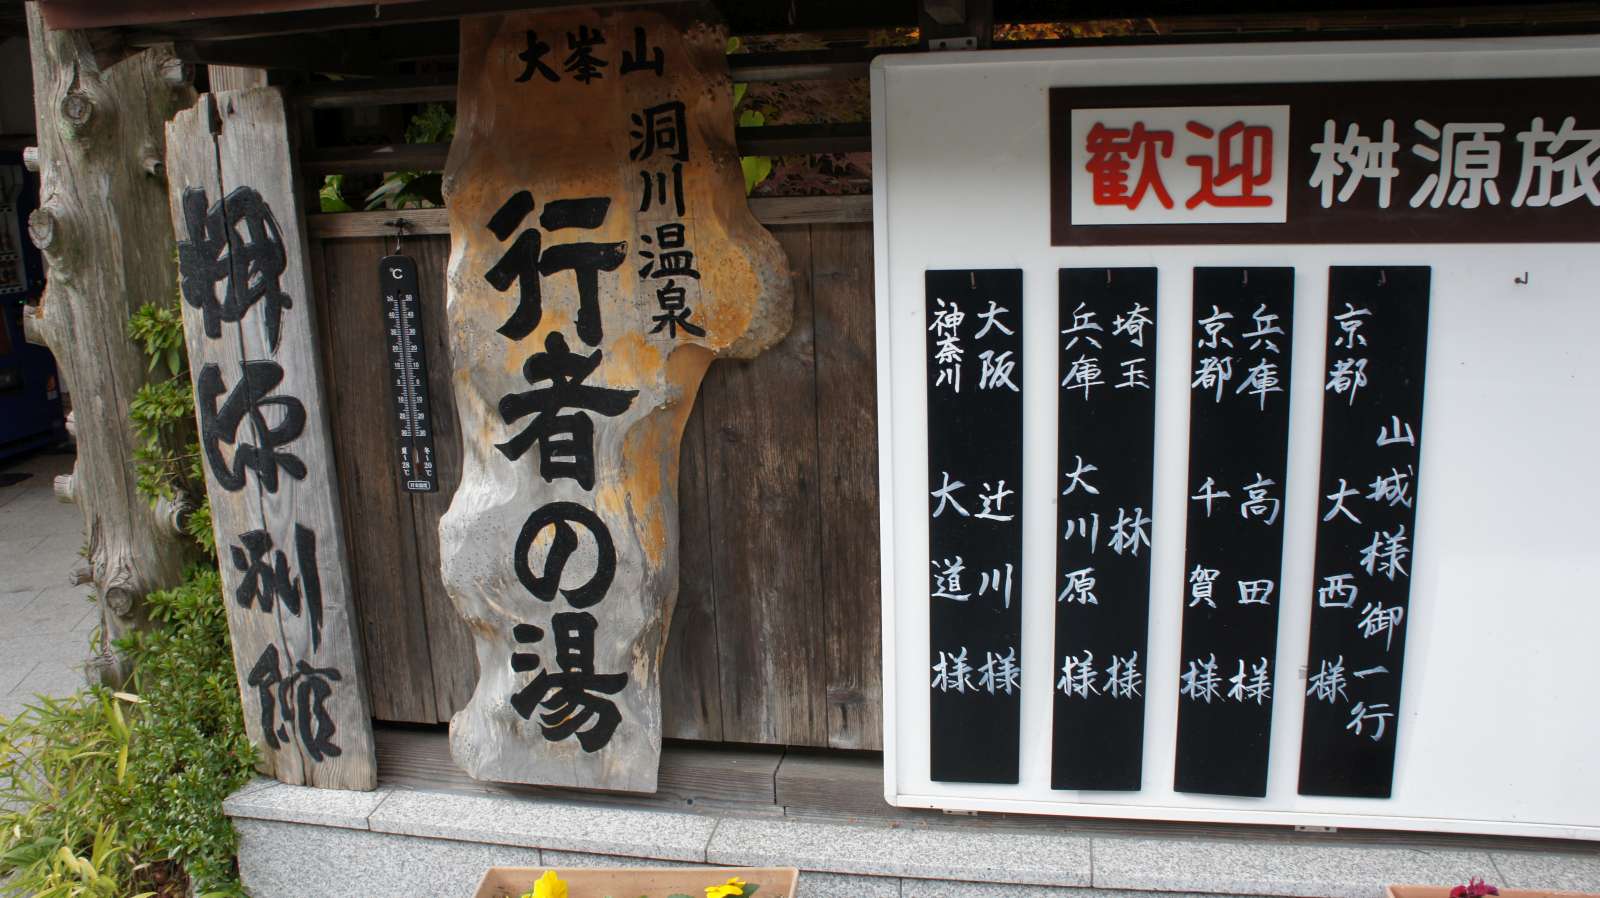 大峯山
洞川温泉
行者の湯
桝源別館
℃
夏～28℃
冬～20℃
歓迎 桝源旅
大阪 辻川様
神奈川 大道様
埼玉 林様
兵庫 大川原様
兵庫 高田様
京都 千賀様
京都 山城様御一行
大西様